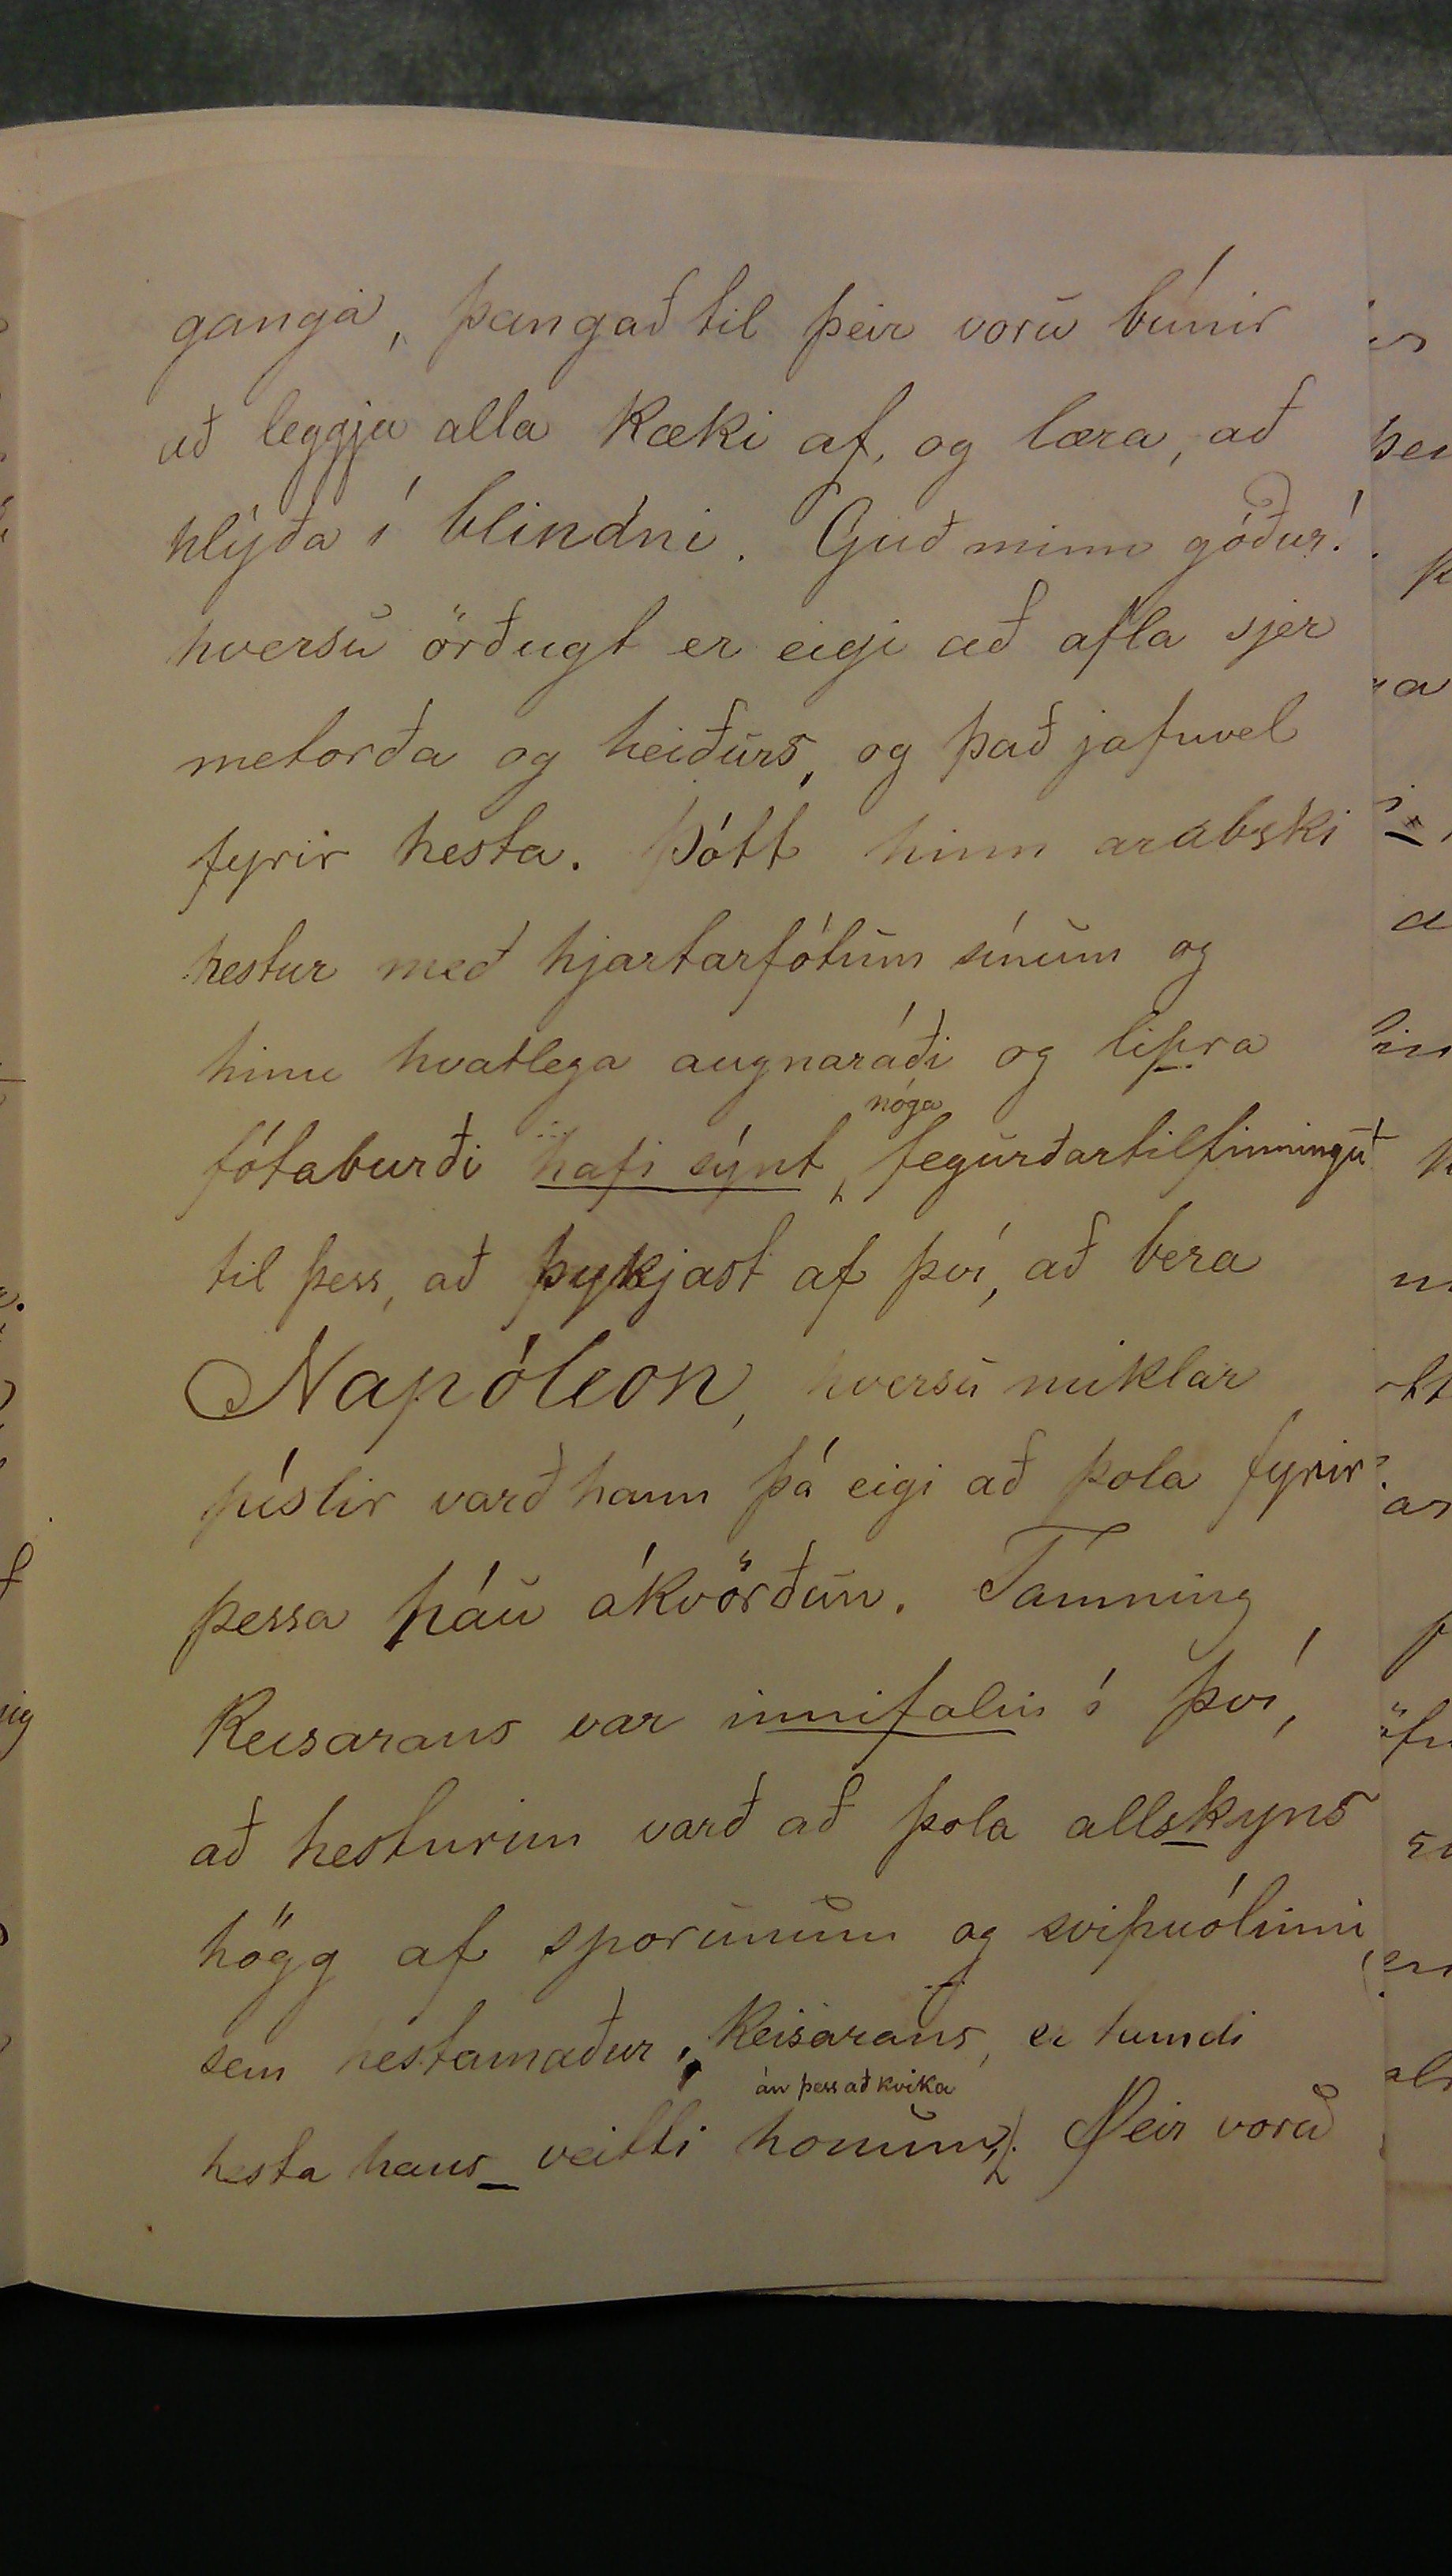 ganga, þangað til þeir voru búnir
að leggja alla kæki af, og læra, að
hlýða í blindni. Guð minn góður!
hversu örðugt er eigi að afla sjer
metorða og heiðurs, og það jafnvel
fyrir hesta. Þótt hinn arabski
hestur með hjartarfótum sínum og
hinu hvatlega augnaráði og lipra
nóga
fótaburði hafi sýnt fegurðartilfinningu
til þess, að þykjast af því, að bera
Napóleon, hversu miklar
píslir varð hann þá eigi að þola fyrir
þessa háu ákvörðun. Tamning
Keisarans var innifalin í því,
að hesturinn varð að þola allskyns
högg af sporunum og svipuólinni,
sem hestamaður Keisarans, er tamdi
án þess að kvika
hesta hans veitti honum. Þeir voru